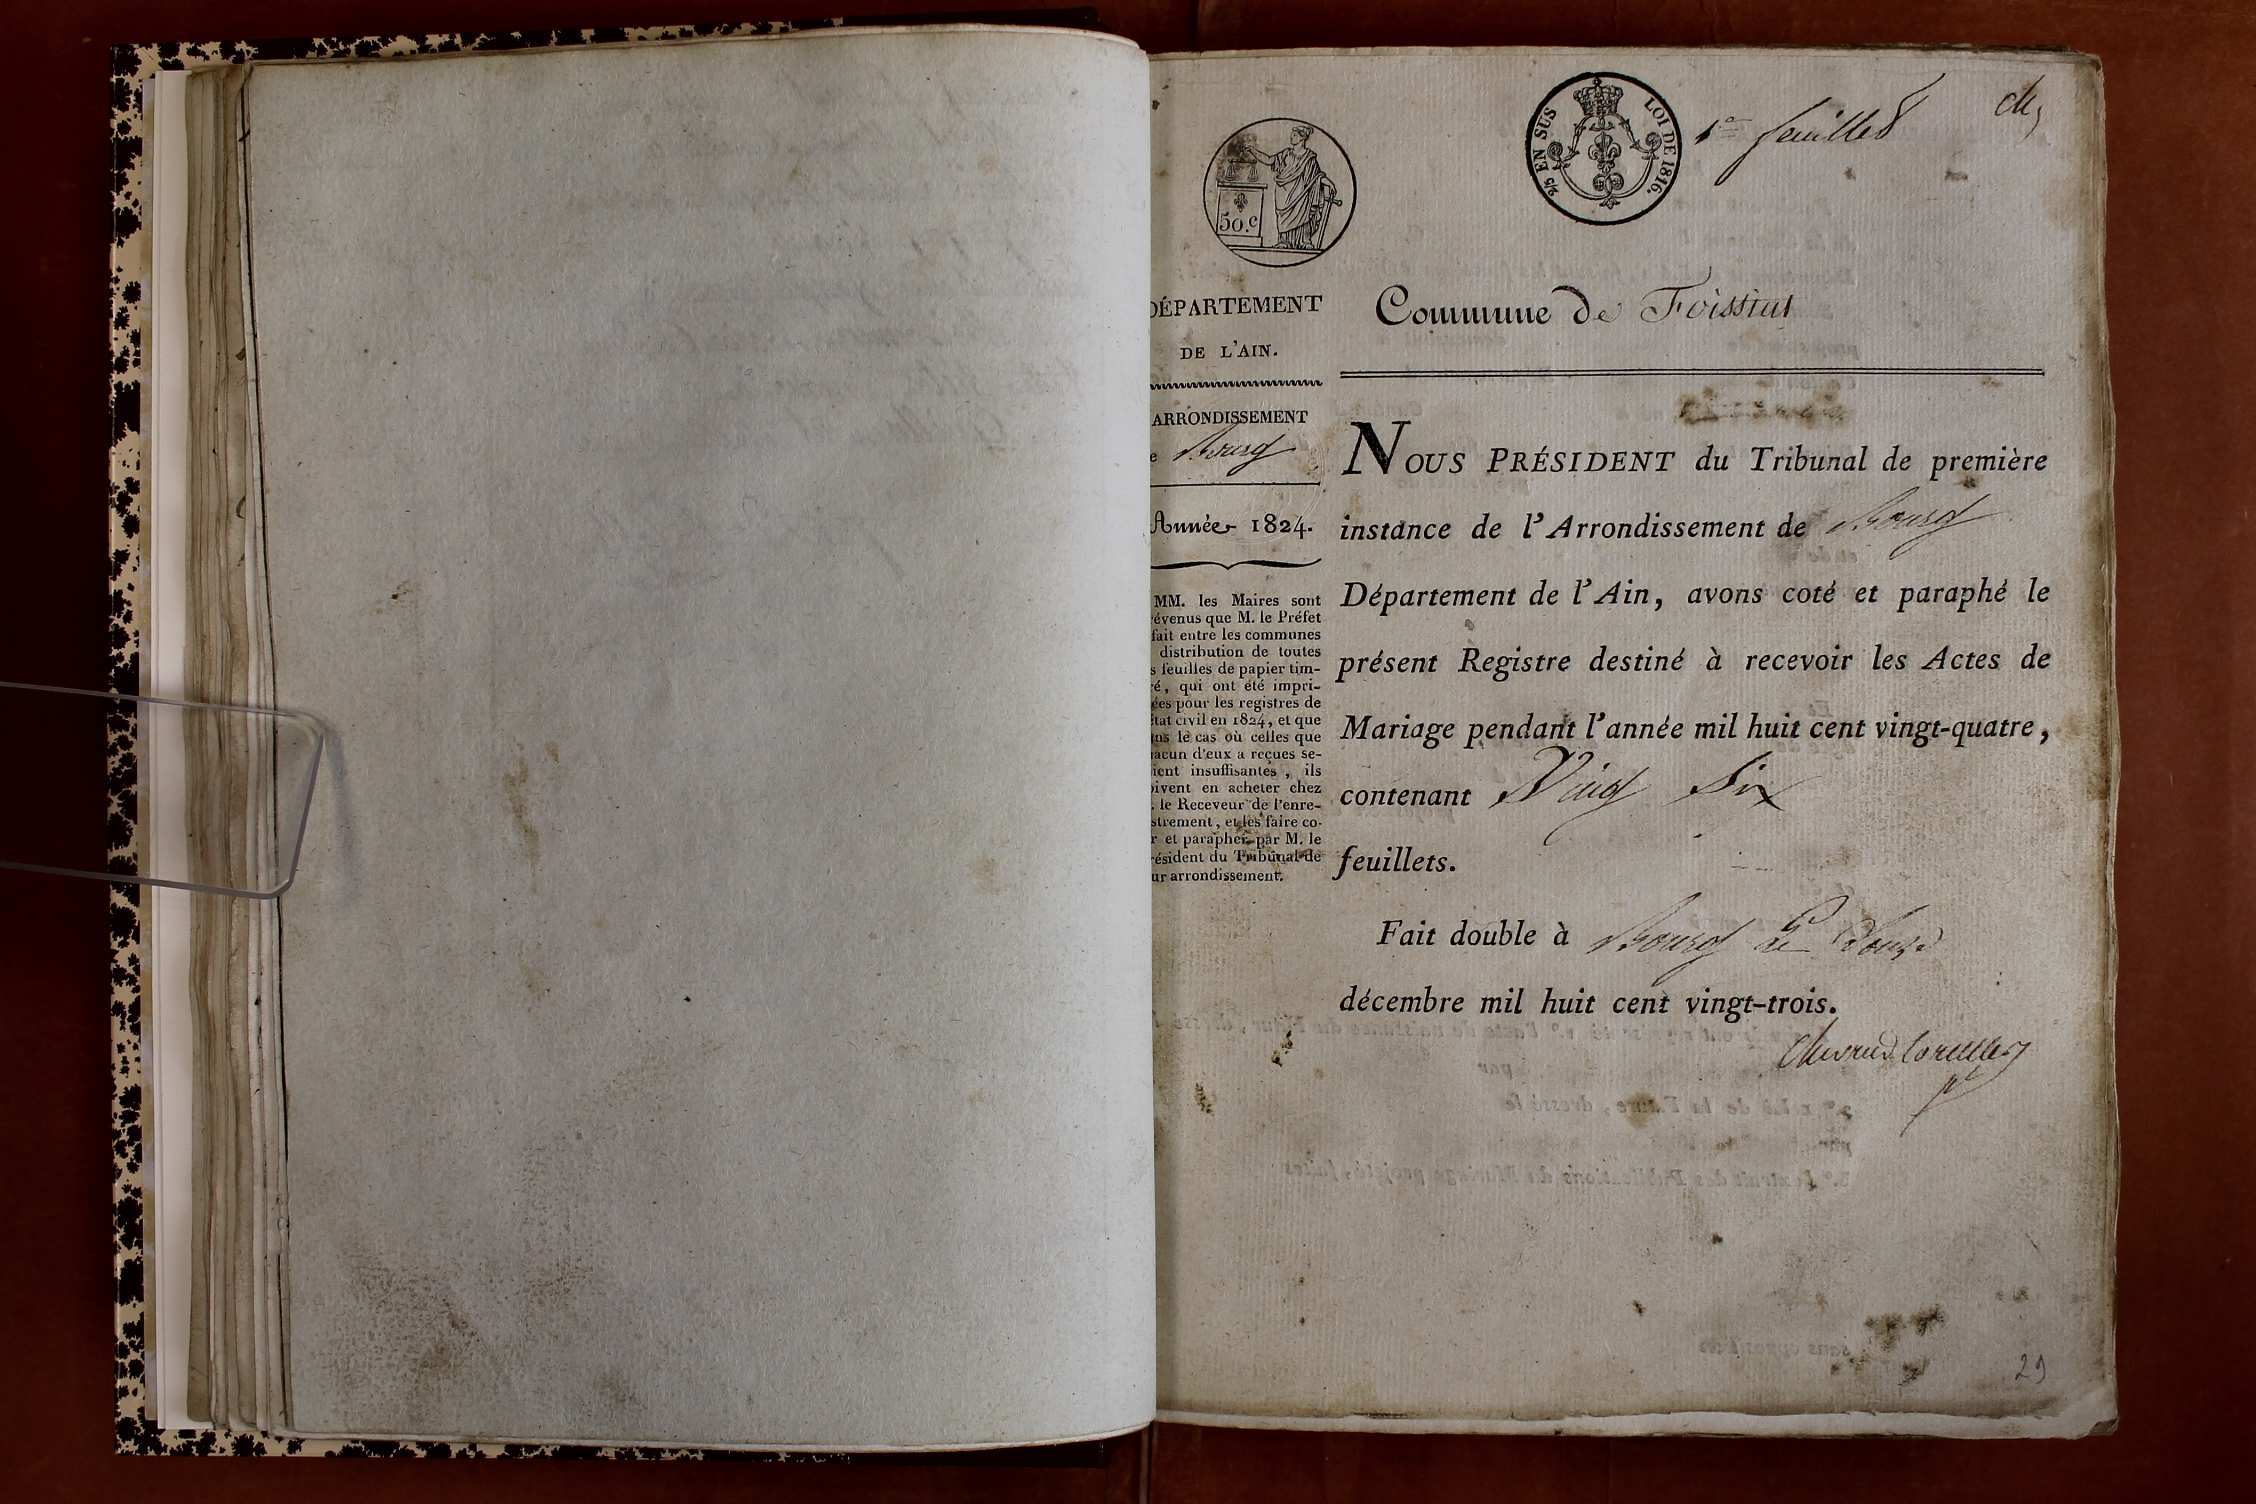 50.c
2/5 EN SUS LOI DE 1816.
1er feuillet
DÉPARTEMENT
DE L'AIN.
ARRONDISSEMENT
e Bourg
Année 1824.
MM. les Maires sont
révenus que M. le Préfet
fait entre les communes
distribution de toutes
s feuilles de papier tim-
ré, qui ont été impri-
ées pour les registres de
état civil en 1824, et que
ns le cas où celles que
acun d'eux a reçues se-
ient insuffisantes, ils
oivent en acheter chez
. le Receveur de l'enre-
strement, et les faire co-
r et parapher par M. le
résident du Tribunal de
ur arrondissement.
Commune de Foissiat
NOUS PRÉSIDENT du Tribunal de première
instance de l'Arrondissement de Bourg
Département de l'Ain, avons coté et paraphé le
présent Registre destiné à recevoir les Actes de
Mariage pendant l'année mil huit cent vingt-quatre,
contenant Vingt Six
feuillets.
Fait double à Bourg Le Douze
décembre mil huit cent vingt-trois.
29